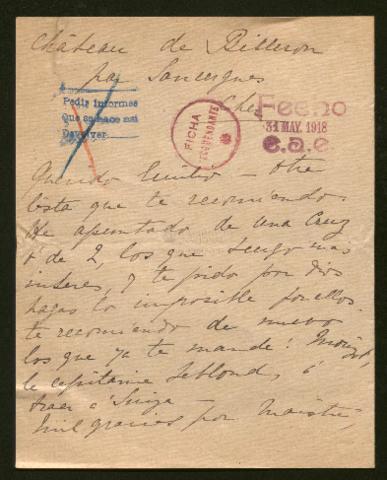 Château de Billeron
par Sancergues
Cher
Pedir informes
Que se hace así
Devolver
FICHA
Fecho
31 MAY. 1918
e.a.e.
Querido Emilio - Otra
lista que te recomiendo.
He apuntado de una Cruz
+ de 2, los que tengo mas
interes, y te pido por Dios
hagas lo imposible por ellos.
te recomiendo de nuevo
los que ya te mandé:
le capitaine Leblond, à
traer a Suiza -
Mil gracias por